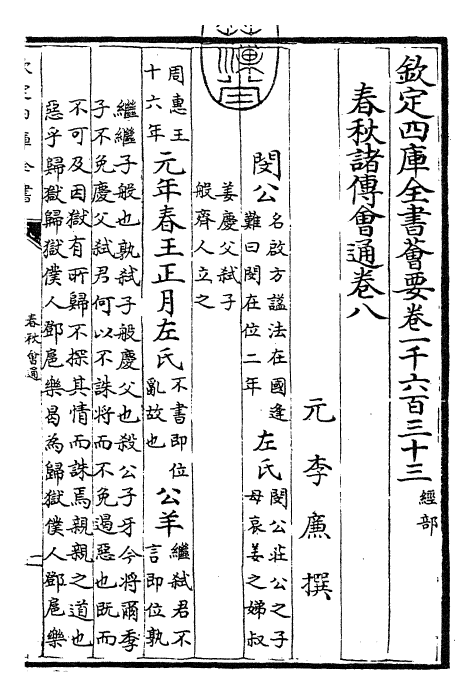 欽定四庫全書薈要卷一千六百三十三 經部
春秋諸傳會通卷八
元 李廉 撰
閔公 名啟方諡法在國逢難曰閔在位二年 左氏 閔公莊公之子母哀姜之娣叔
姜慶父弑子般齊人立之
周惠王十六年 元年春王正月左氏 不書即位亂故也 公羊 繼弑君不言即位孰
繼繼子般也孰弑子般慶父也殺公子牙今將爾季
子不免慶父弑君何以不誅將而不免遏惡也既而
不可及因獄有所歸不探其情而誅焉親親之道也
惡乎歸獄歸獄僕人鄧扈樂曷為歸獄僕人鄧扈樂
欽定四庫全書
春秋會通